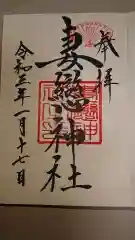 奉拝
妻戀神社
令和三年一月十七日